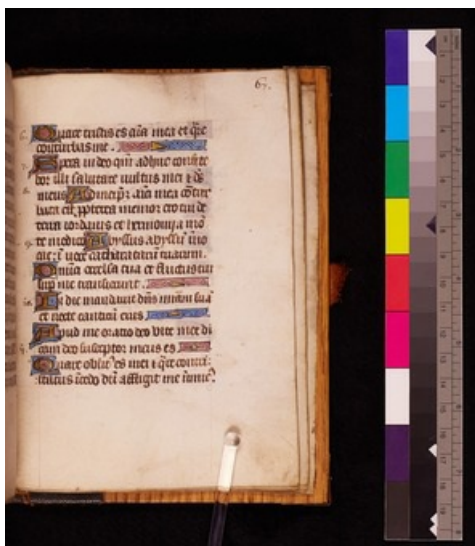 67.
Quare tristis es aīa mea et q̄re
conturbas me.
Spera in deo qm̄ adhuc confite
bor illi salutare vultus mei & ds̄
meus Ad meip̄m aīa mea cōtur
bata est ppterea memor ero tui de
terra iordanis et hermonim a mō
te modico Abyssus abyssū īuo
cat: ī voce catharactarū tuarum.
Omnia excelsa tua et fluctus tui
sup me transierunt.
In die mandavit dn̄s miām suā
et nocte canticū eius
Apud me oratio deo vite mee di
cam deo susceptor meus es
Quare oblit᷒ es mei & q̄re contri
status īcedo dū affligit me inimic᷒